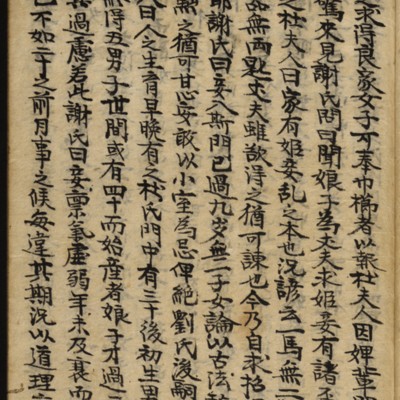 求得良家女子可奉巾櫛者以報杜夫人因婢輩
驚來見謝氏問曰聞娘子為丈夫求姬妾有諸
之杜夫人曰家有姬妾乱之本也况諺云一馬無二
無兩匙丈夫雖欲得之猶可諫也今乃自求招
耶謝氏曰妾入斯門已過九岁無一子女論以古法
黜之猶可甘心妾敢以小室為忌俾絕劉氏後嗣
人曰人之生育早晚有之杜氏門中有三十後初生男
得五男子世間或有四十而始産者娘子才過
過慮若此謝氏曰妾禀氣虛弱年未及衰而
已不如二十之前月事之候每違其期況以道理